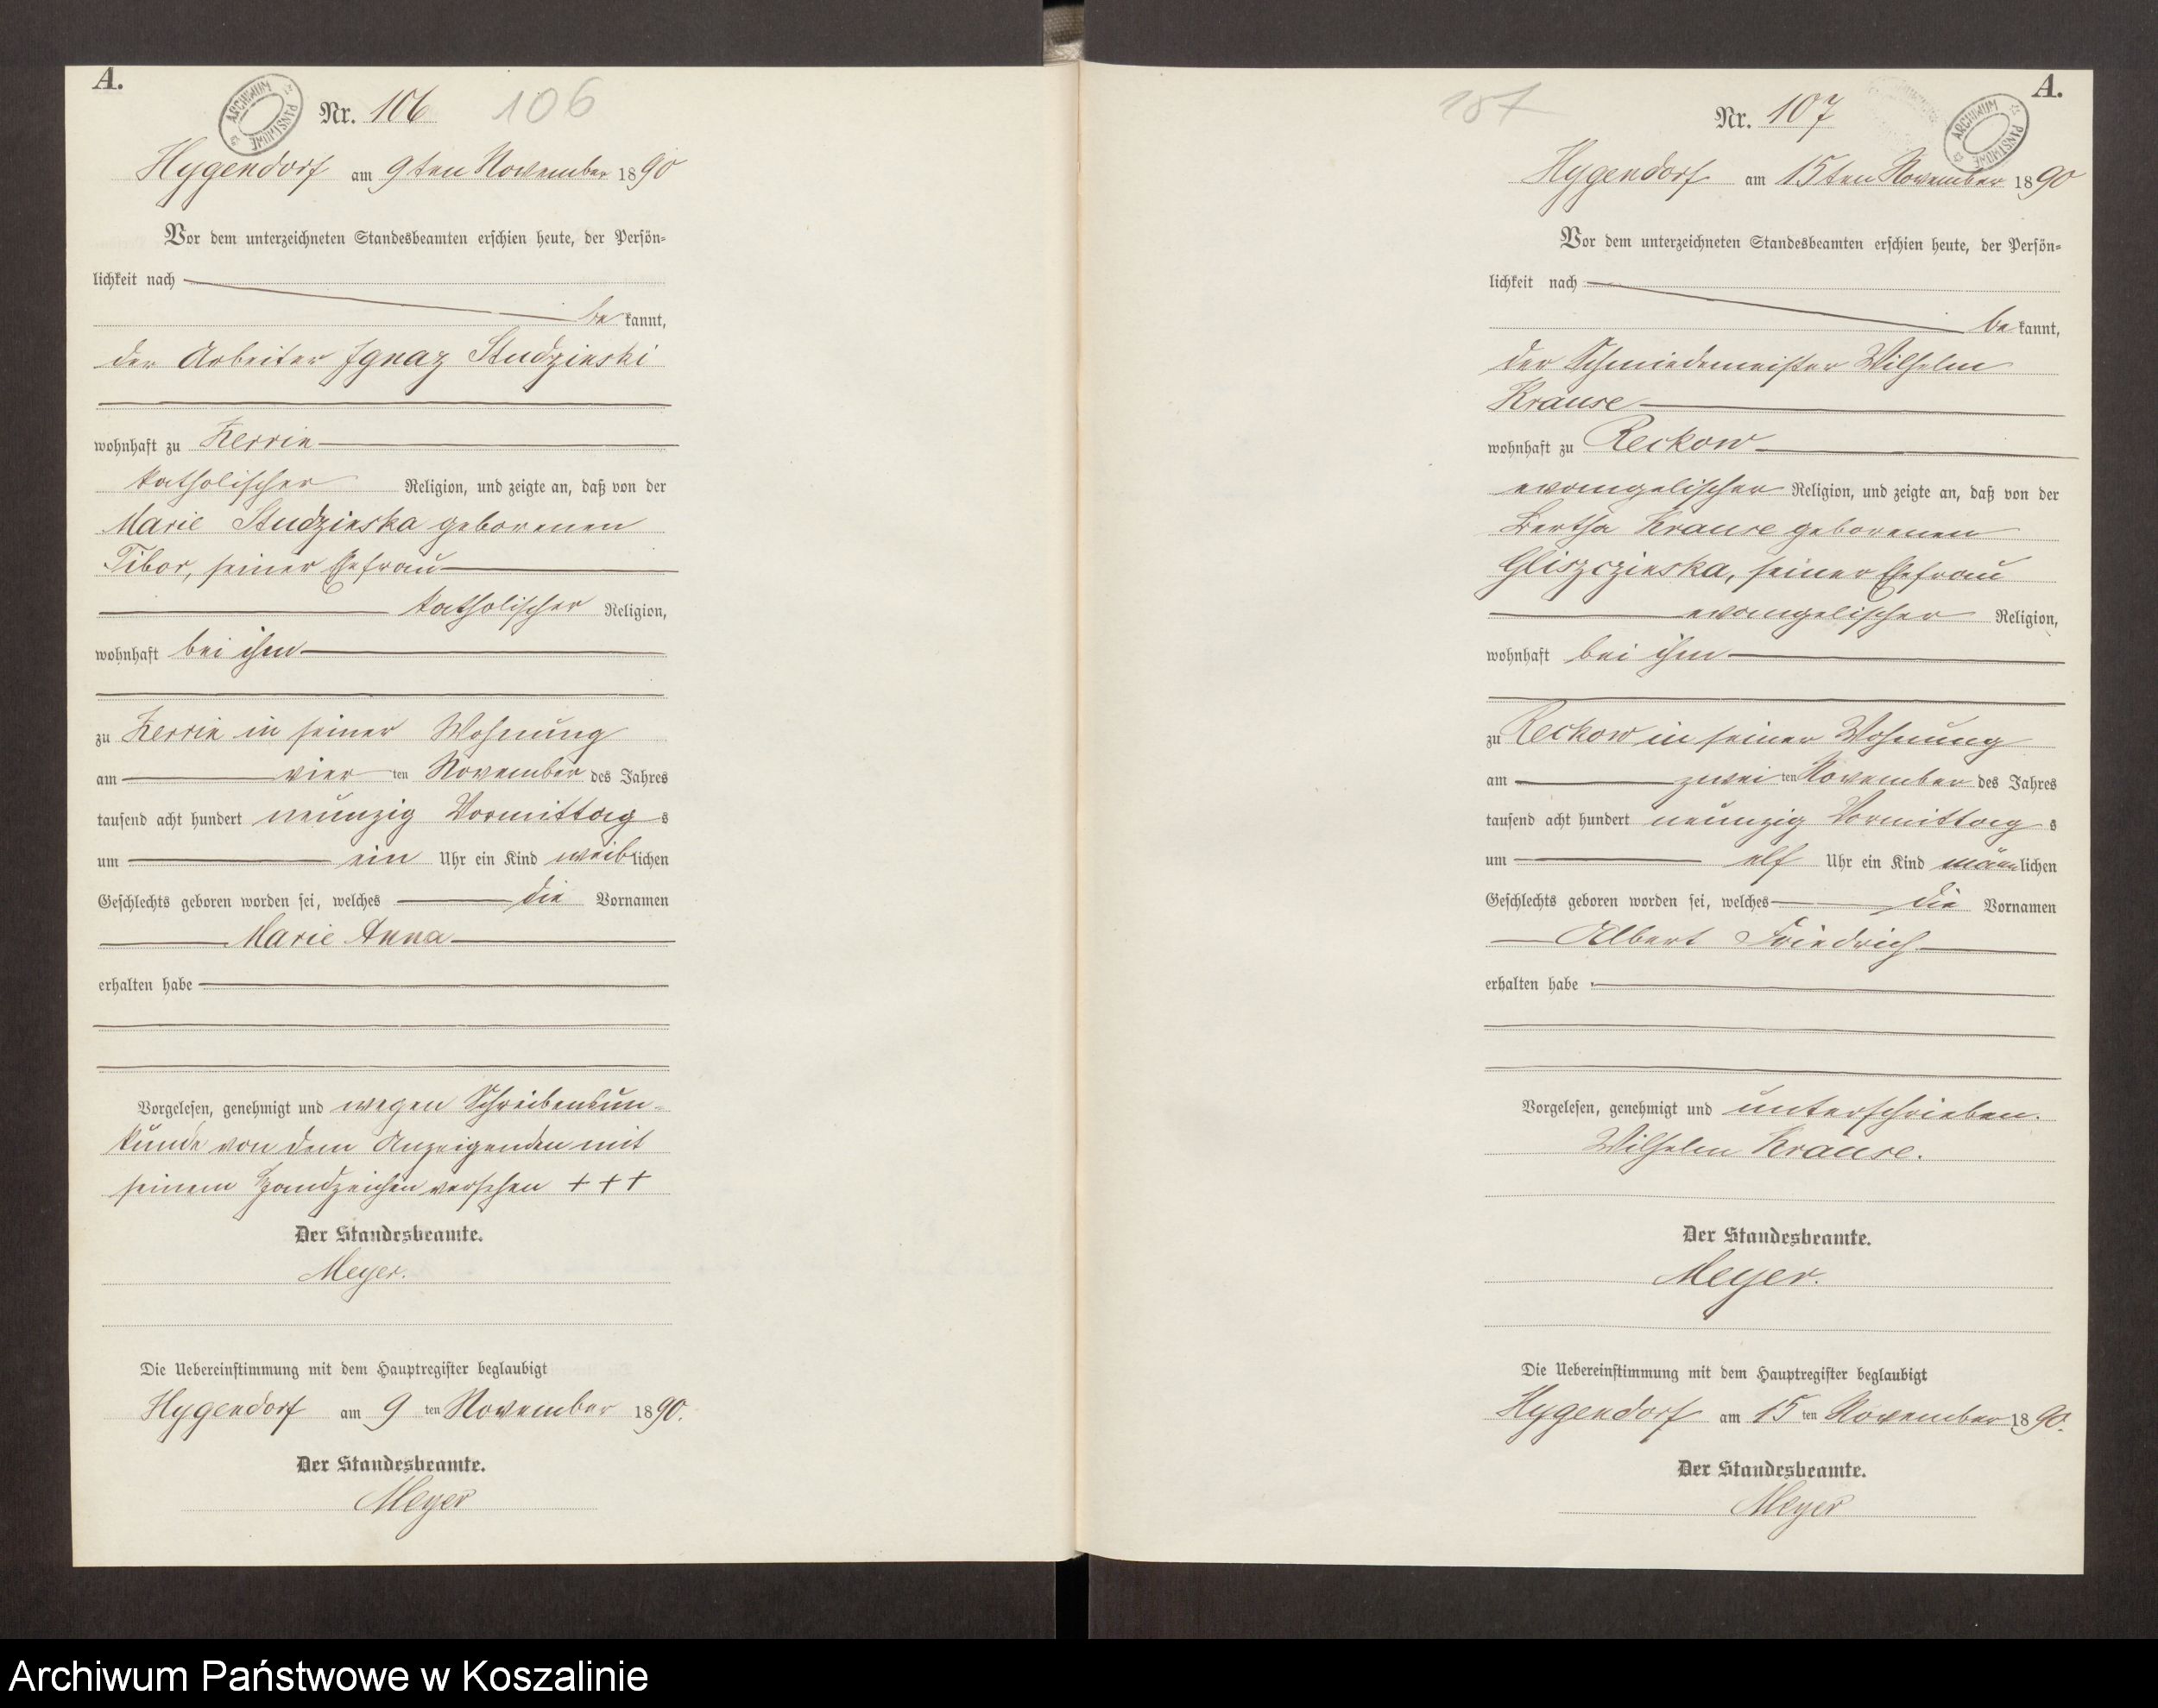 A.
ARCHIWUM PAŃSTWOWE
Nr. 106 106
Hygendorf am 9ten November 1890
Vor dem unterzeichneten Standesbeamten erschien heute, der Persön-
lichkeit nach
bekannt,
der Arbeiter Ignaz Studzinski
wohnhaft zu Zerrin
katholischer Religion, und zeigte an, daß von der
Marie Studzinska geborenen
Tibor, seiner Ehefrau
katholischer Religion,
wohnhaft bei ihm
zu Zerrin in seiner Wohnung
am vierten November des Jahres
tausend acht hundert neunzig Vormittags
um ein Uhr ein Kind weiblichen
Geschlechts geboren worden sei, welches die Vornamen
Marie Anna
erhalten habe
Vorgelesen, genehmigt und wegen Schreibensun-
kunde von dem Anzeigenden mit
seinem Handzeichen versehen +++
Der Standesbeamte.
Meyer.
Die Uebereinstimmung mit dem Hauptregister beglaubigt
Hygendorf am 9ten November 1890.
Der Standesbeamte.
Meyer
A.
ARCHIWUM PAŃSTWOWE
107 Nr. 107
Hygendorf am 15ten November 1890
Vor dem unterzeichneten Standesbeamten erschien heute, der Persön-
lichkeit nach
bekannt,
der Schmiedemeister Wilhelm
Krause
wohnhaft zu Reckow
evangelischer Religion, und zeigte an, daß von der
Bertha Krause geborenen
Gliszczinska, seiner Ehefrau
evangelischer Religion,
wohnhaft bei ihm
zu Reckow in seiner Wohnung
am zweiten November des Jahres
tausend acht hundert neunzig Vormittags
um elf Uhr ein Kind männlichen
Geschlechts geboren worden sei, welches die Vornamen
Albert Friedrich
erhalten habe
Vorgelesen, genehmigt und unterschrieben.
Wilhelm Krause.
Der Standesbeamte.
Meyer.
Die Uebereinstimmung mit dem Hauptregister beglaubigt
Hygendorf am 15ten November 1890.
Der Standesbeamte.
Meyer
Archiwum Państwowe w Koszalinie